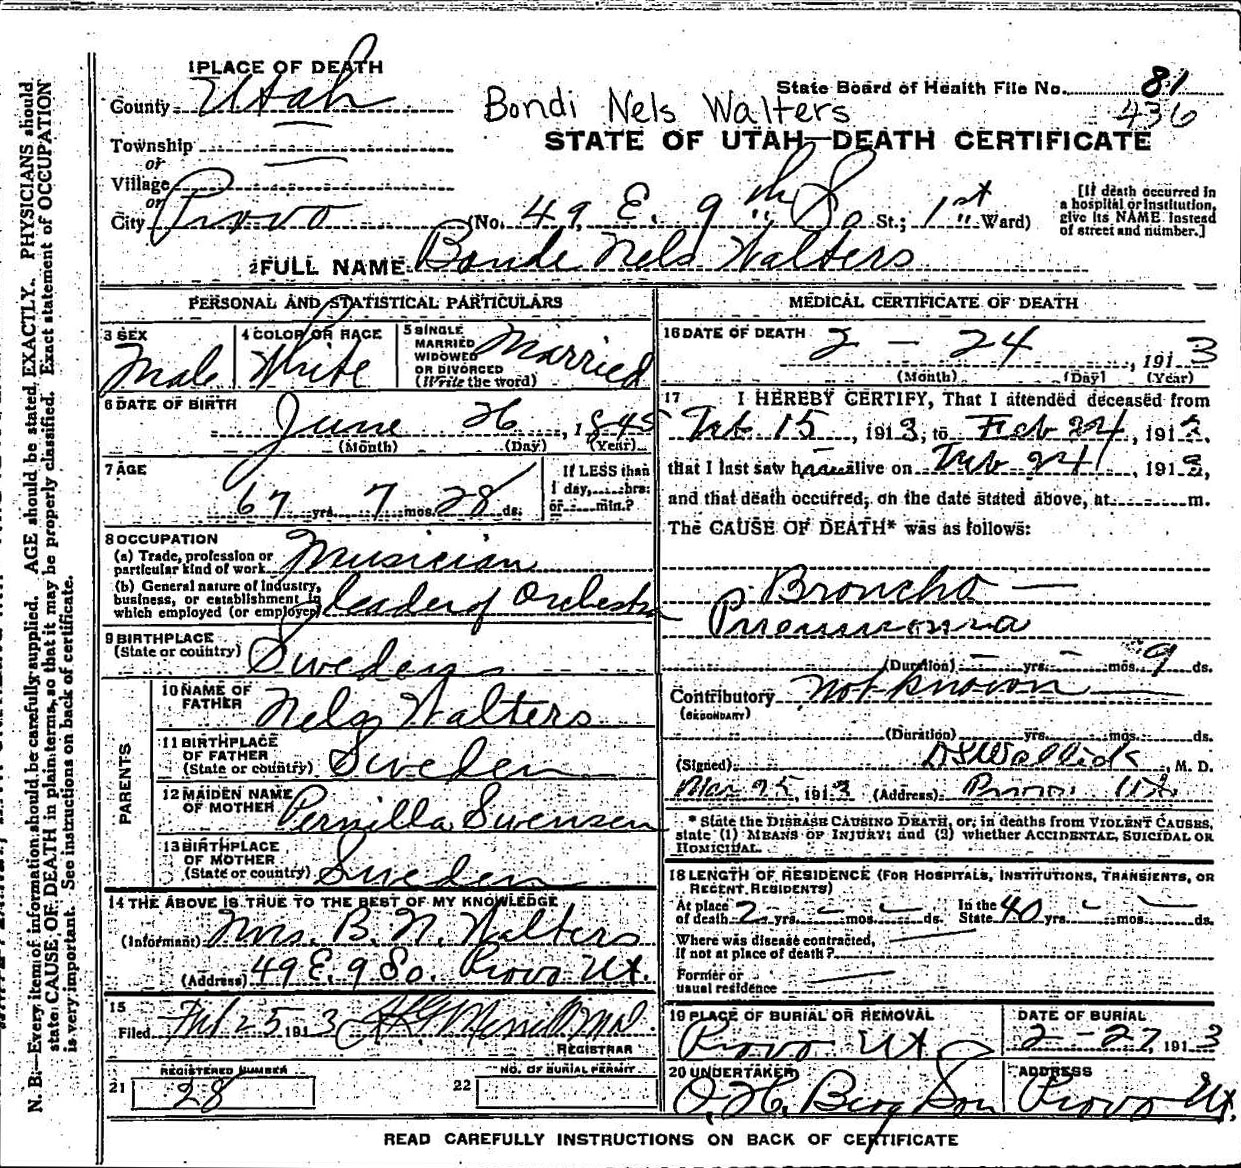 1 PLACE OF DEATH
County Utah
State Board of Health File No. 81
436
Bondi Nels Walters
STATE OF UTAH—DEATH CERTIFICATE
Township
or
Village
or
City Provo (No. 49 E. 9th So St.; 1st Ward)
[If death occurred in
a hospital or institution,
give its NAME instead
of street and number.]
2 FULL NAME Bonde Nels Walters
PERSONAL AND STATISTICAL PARTICULARS
3 SEX Male
4 COLOR OR RACE White
5 SINGLE
MARRIED
WIDOWED
OR DIVORCED
(Write the word)
Married
6 DATE OF BIRTH
June 26, 1845
(Month) (Day) (Year)
7 AGE
67 yrs. 7 mos. 28 ds.
If LESS than
1 day, hrs.
or min.?
8 OCCUPATION
(a) Trade, profession or
particular kind of work Musician
(b) General nature of Industry,
business, or establishment in
which employed (or employer) Leader of Orchestra
9 BIRTHPLACE
(State or country) Sweden
PARENTS
10 NAME OF
FATHER Nels Walters
11 BIRTHPLACE
OF FATHER
(State or country) Sweden
12 MAIDEN NAME
OF MOTHER Pernilla Swensen
13 BIRTHPLACE
OF MOTHER
(State or country) Sweden
14 THE ABOVE IS TRUE TO THE BEST OF MY KNOWLEDGE
(Informant) Mrs. B. N. Walters
(Address) 49 E. 9 So. Provo Ut.
15
Filed Feb 25 1913 Merrill M.D.
REGISTRAR
21 REGISTERED NUMBER
28
22 NO. OF BURIAL PERMIT
MEDICAL CERTIFICATE OF DEATH
16 DATE OF DEATH 2 - 24, 1913
(Month) (Day) (Year)
17 I HEREBY CERTIFY, That I attended deceased from
Feb 15, 1913, to Feb 24, 1913,
that I last saw h alive on Feb 24, 1913,
and that death occurred, on the date stated above, at m.
The CAUSE OF DEATH* was as follows:
Broncho —
Pneumonia
(Duration) - yrs. - mos. 9 ds.
Contributory not known
(SECONDARY)
(Duration) yrs. mos. ds.
(Signed) Wallick, M. D.
Mar 25, 1913 (Address) Provo Ut.
* State the DISEASE CAUSING DEATH, or, in deaths from VIOLENT CAUSES,
state (1) MEANS OF INJURY; and (2) whether ACCIDENTAL, SUICIDAL OR
HOMICIDAL.
18 LENGTH OF RESIDENCE (FOR HOSPITALS, INSTITUTIONS, TRANSIENTS, OR
RECENT RESIDENTS)
At place
of death 2 yrs. - mos. - ds. In the
State 40 yrs. - mos. - ds.
Where was disease contracted,
If not at place of death?
Former or
usual residence
19 PLACE OF BURIAL OR REMOVAL
Provo Ut
DATE OF BURIAL
2-27, 1913
20 UNDERTAKER
O. H. Berg Son
ADDRESS
Provo Ut.
READ CAREFULLY INSTRUCTIONS ON BACK OF CERTIFICATE
N. B.—Every item of information should be carefully supplied. AGE should be stated EXACTLY. PHYSICIANS should
state CAUSE OF DEATH in plain terms, so that it may be properly classified. Exact statement of OCCUPATION
is very important. See instructions on back of certificate.